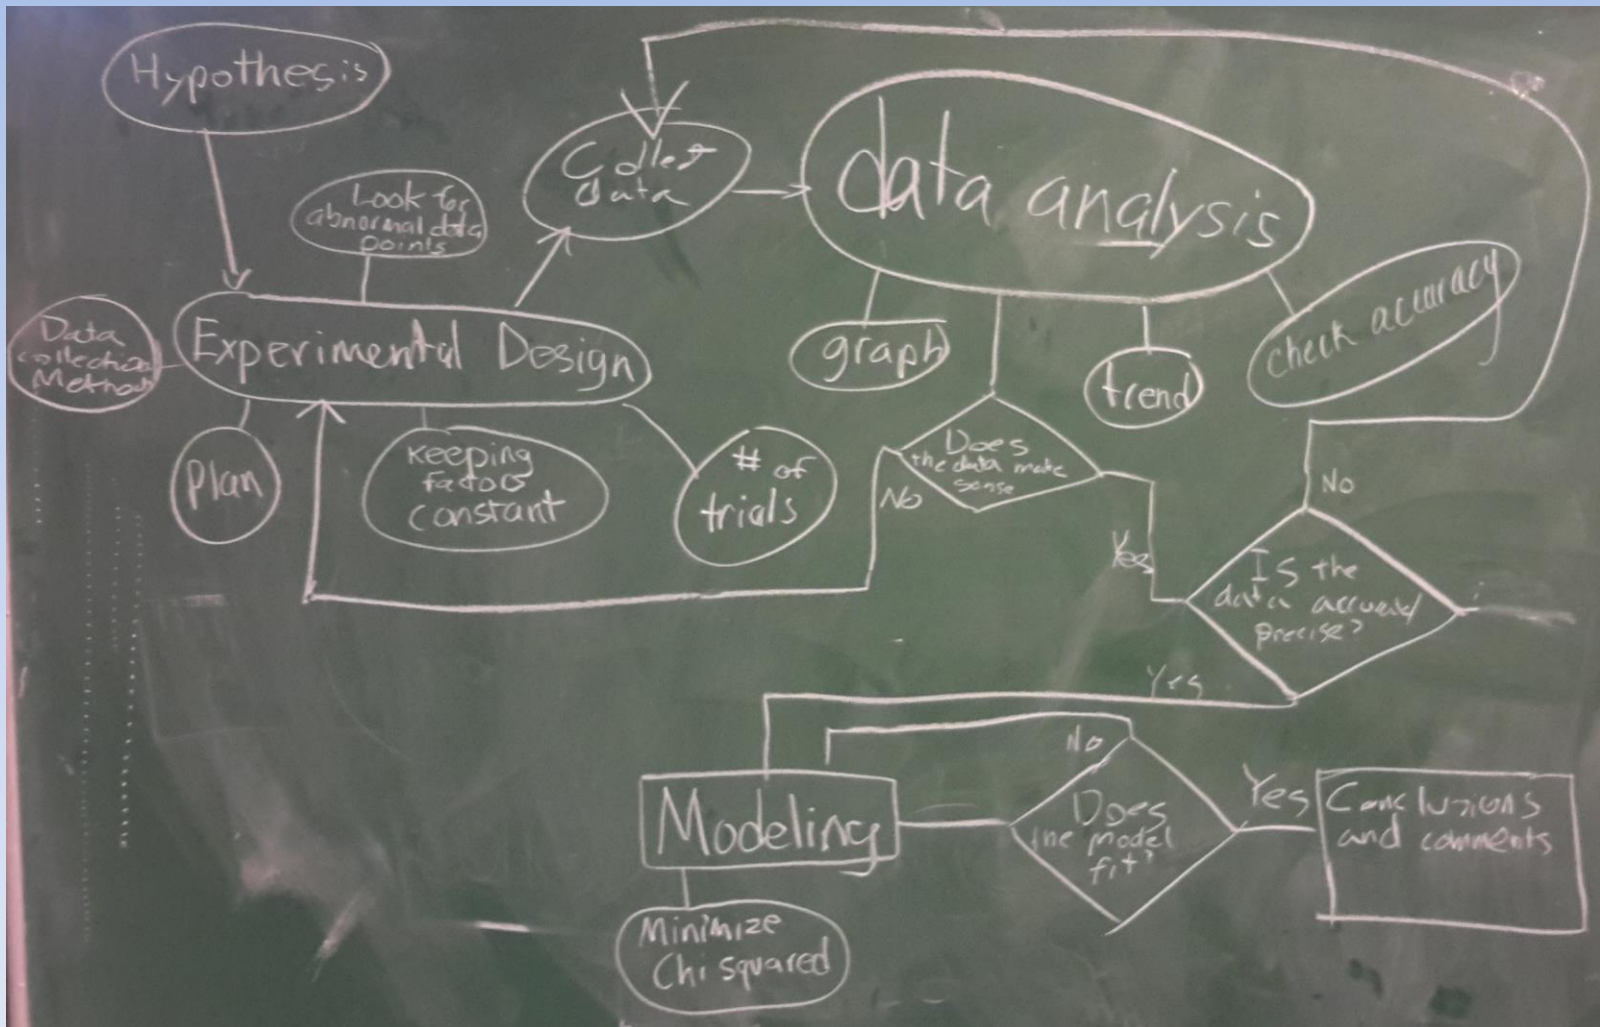 Hypothesis
Look for
abnormal data
points
Collect
data
data analysis
Data
collection
Methods
Experimental Design
graph
trend
check accuracy
Plan
Keeping
factors
constant
# of
trials
Does
the data make
sense
No
Yes
No
Is the
data accurate/
precise?
Yes
No
Modeling
Does
the model
fit?
Yes
Conclusions
and comments
Minimize
Chi squared